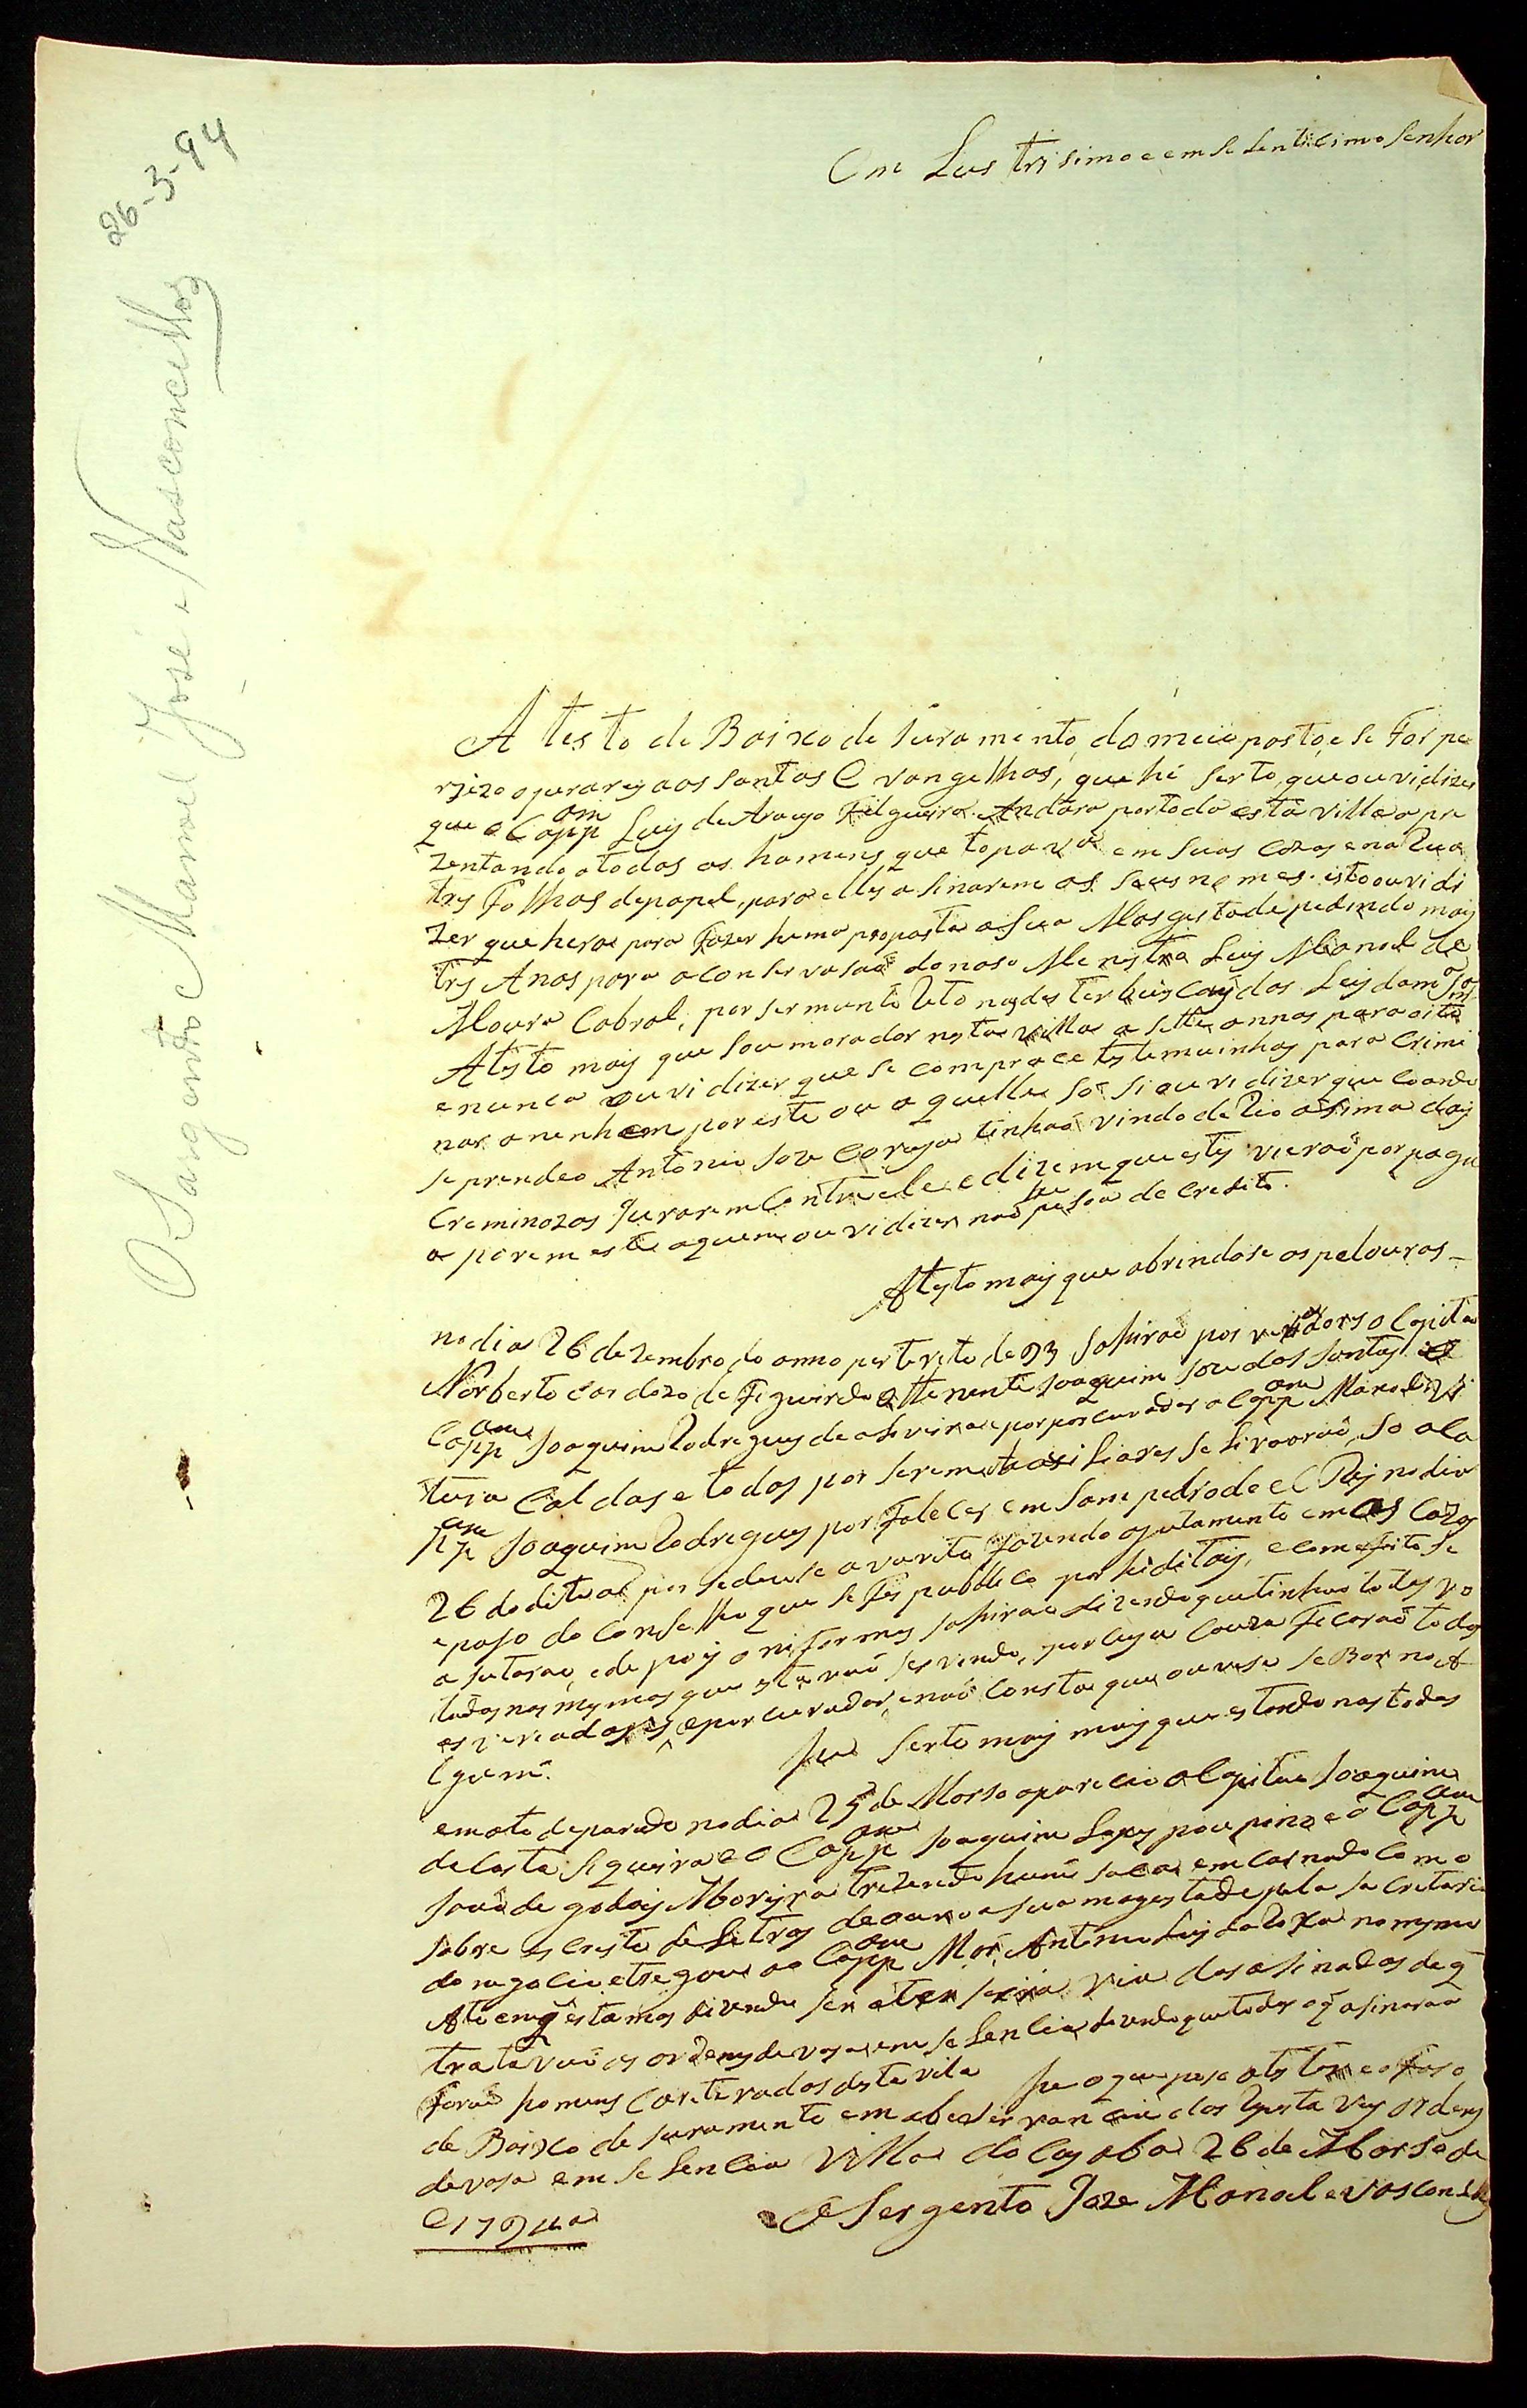 26-3-94
O Sargento Manuel José e Vasconcellos
Em Lus trisimo e em se lenticimo Senhor
A testo de Baixo de Juramento do meu posto, e se For pe
rsizo o jurarey aos Santos Evangelhos, que hé serto, que ouvi dizer
que o Capp am Luis de Araujo Filgueira Andara por toda esta villa a pre
zentando a todos os homens que topava em suas cazas e na Rua
tres Folhas de papel, para elles asinarem os seus nomes. isto ouvi di
zer que hera para Fazer huma proposta a Sua Magestade pedindo mais
tres Anos para a conservasaõ do noso Menistro Luis Manoel de
Moura Cabral, por ser muinto Reto nas des terbuicoys das Leys do mesmo Sor
Atesto mais que sou morador nesta villa a sette annos para oito
e nunca ouvi dizer que se comprace testemuinhas para Crimi
nar a nenhem por este ou aquelle so si ouvi dizer que coando
se prendeo Antonio Joze Coreya tinhaõ vindo de Rio asima dois
Creminozos Jurarem Contra ele e dizem que estes vieraõ por paga
a porem este a quem ouvi dizer naõ he pesoa de Credito.
Atesto mais que abrindose os pelouros
no dia 26 dezembro do anno preterito de 93 Sahiraõ por veriadors o Capitaõ
Norberto Cardozo de Figuirdo o ttenente Joaquim Joze dos Santos e o
Capp am Joaquim Rodregues de oliveira e por porcurador o Capp am Manoel Ve
tura Caldas e todos por serem auxiliares se livraraõ, so o Ca
pp am Joaquim Rodregues por Falecer em Sam pedro de el Rey no dia
26 do dito
e paso do Conselho que se Fes pubblico por hiditais, e com efeito se
todos nos mesmos que estavaõ servindo, por cuja cauza Ficaraõ todos
os veriadores, e porcurador, e naõ Consta que ouvese se Bornno A
lguem.
he serto mais mais que estando nos todos
em ato de parada no dia 25 de Marso apareceo o Capitaõ Joaquim
da Costa Siqueira e o Capp am Joaquim Lopes poupino e o Capp am
Joaõ de godoy Moreyra trezendo hum saco em carnado como
sobre es crito de Letras de ouro a sua magestade pela secretaria
do negocio e tregou ao Capp am Mor Antonio Luis da Roxa no mesmo
Ato em q estamos dizendo ser a terseira via dos asinados de q
tratavaõ as ordens de vosa em se Lencia dizendo que todos os q asinaraõ
Foraõ homens Careterados desta vila
he o que poso atestar e o faso
de Baixo de Juramento em observancia das Respeitaves ordens
de vosa em se Lencia Villa do Cuyaba 26 de Marso de
1794 a
O Sergento Joze Manoel e Vasconsellos